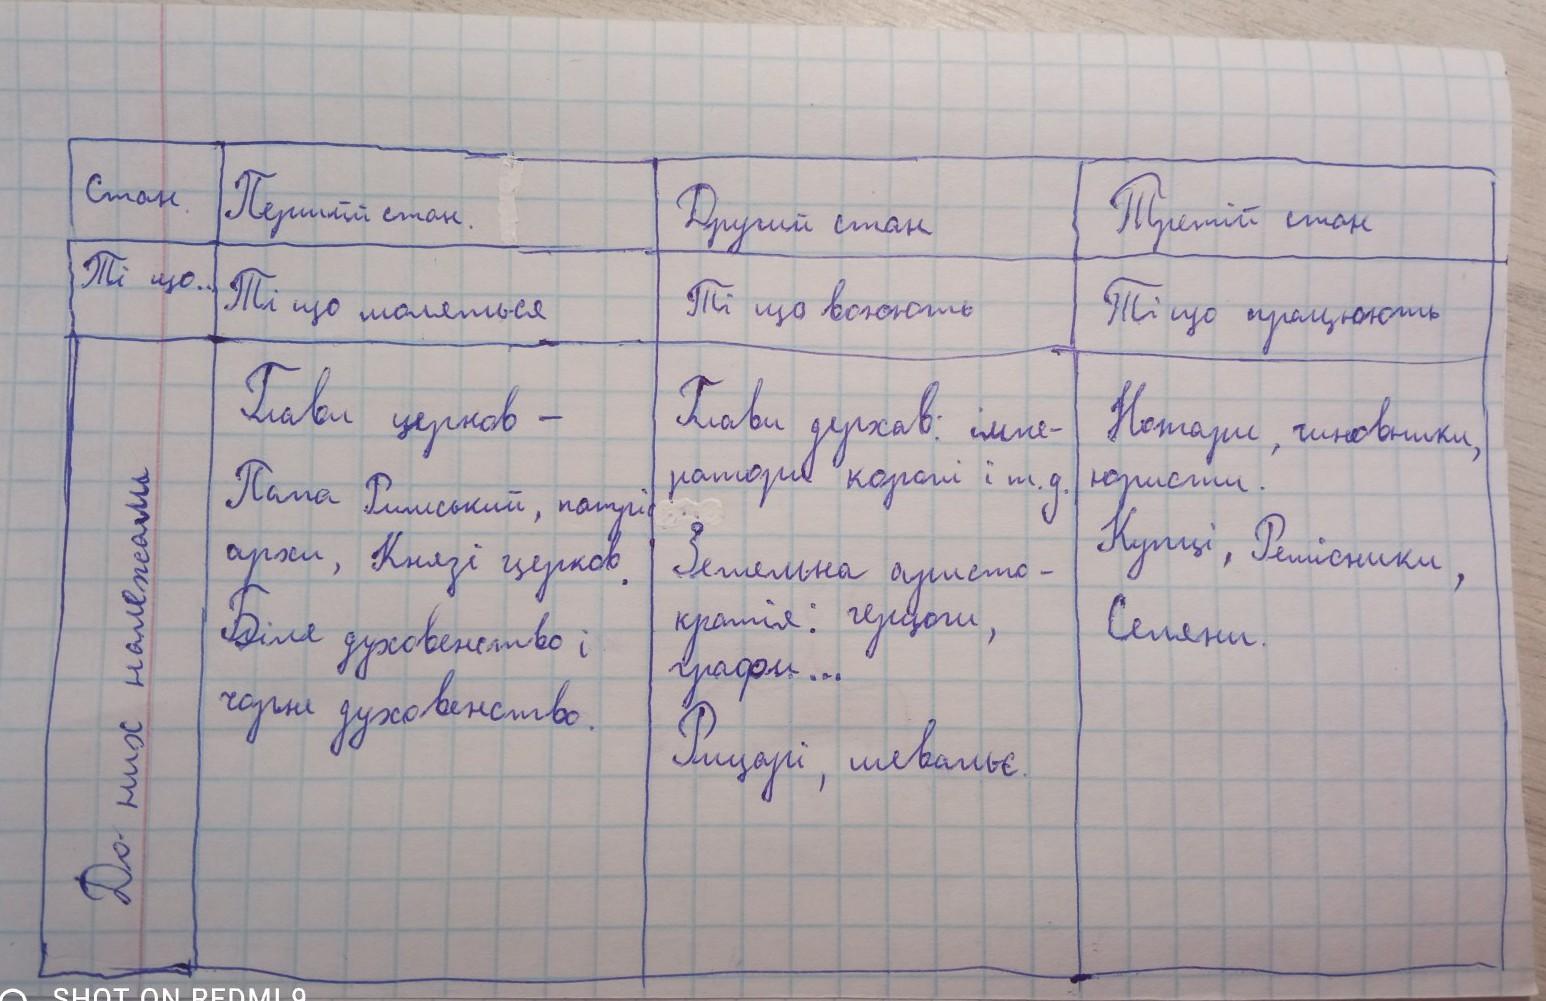 Стан.
Перший стан.
Другий стан
Третій стан
Ті що..
Ті що моляться
Ті що воюють
Ті що працюють
До них належали
Глави церков -
Папа Римський, патрі
архи, Князі церков.
Біле духовенство і
чорне духовенство.
Глави держав: імпе-
ратори королі і т.д.
Земельна аристо-
кратія: герцоги,
графи...
Рицарі, шевальє.
Нотари, чиновники,
юристи.
Купці, Ремісники,
Селяни.
SHOT ON REDMI 9